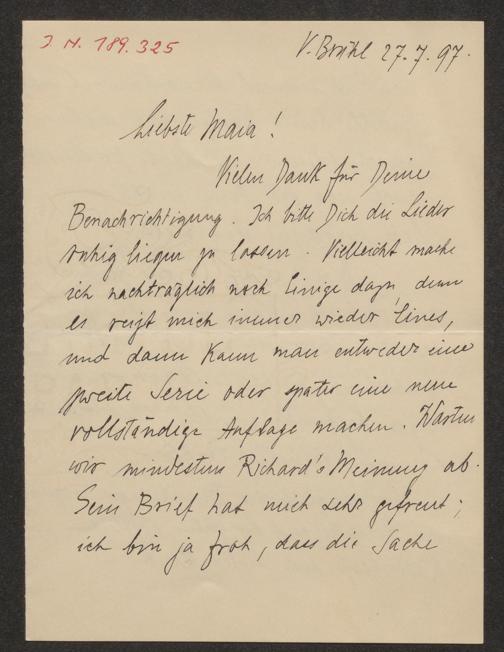 I. N. 189.325
V. Brühl 27.7.97.
Liebste Maia!
Vielen Dank für Deine
Benachrichtigung. Ich bitte Dich die Lieder
ruhig liegen zu lassen. Vielleicht mache
ich nachträglich noch Einige dazu, denn
es reizt mich immer wieder Eines,
und dann kann man entweder eine
zweite Serie oder später eine neue
vollständige Auflage machen. Warten
wir mindestens Richard's Meinung ab.
Sein Brief hat mich sehr gefreut;
ich bin ja froh, dass die Sache